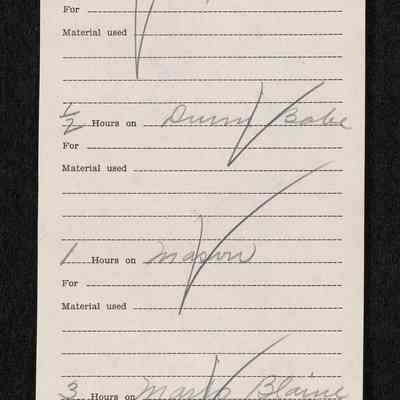 For
Material used
½ Hours on Dunn Babe
For
Material used
1 Hours on Mason
For
Material used
3 Hours on Blaine